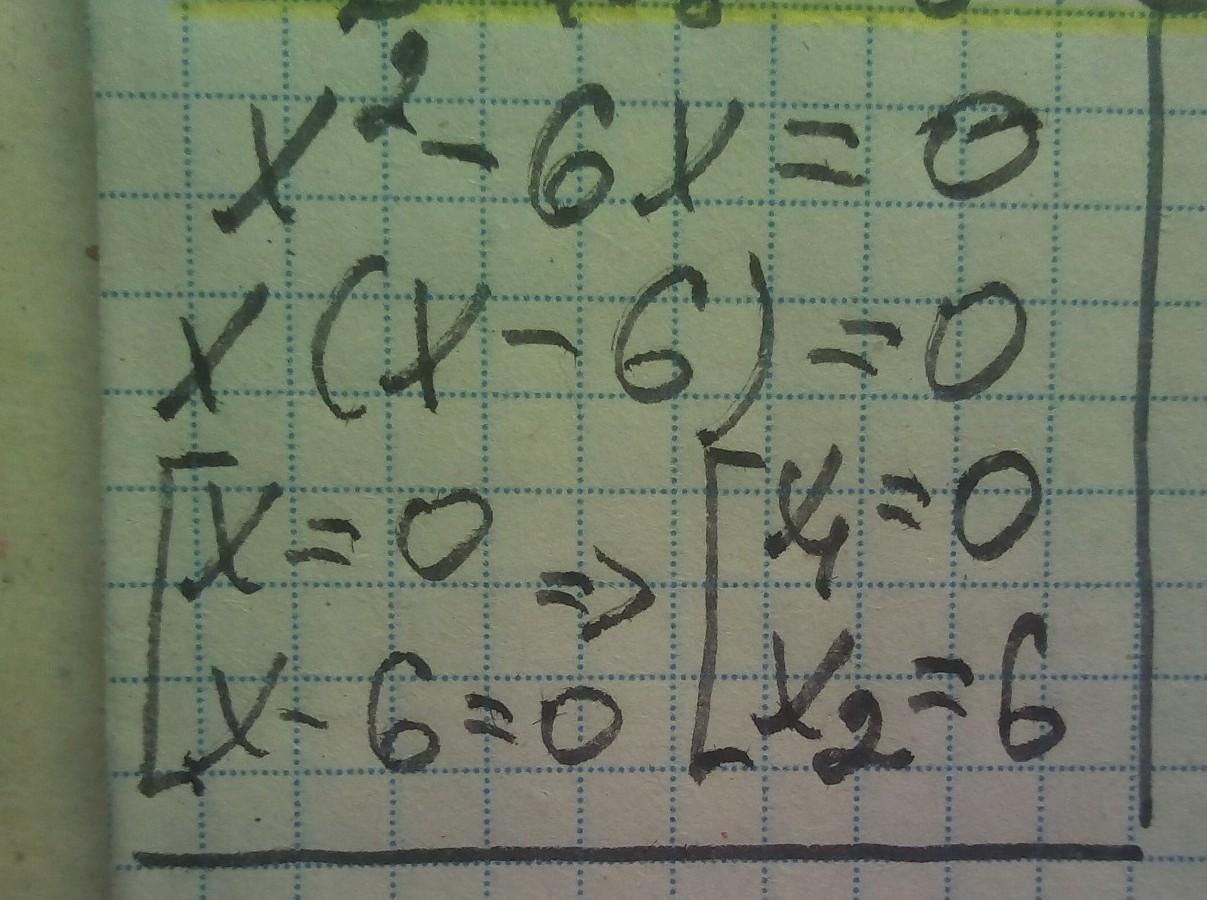 x² - 6x = 0
x(x - 6) = 0
[x = 0 => [x₁ = 0
[x - 6 = 0 [x₂ = 6